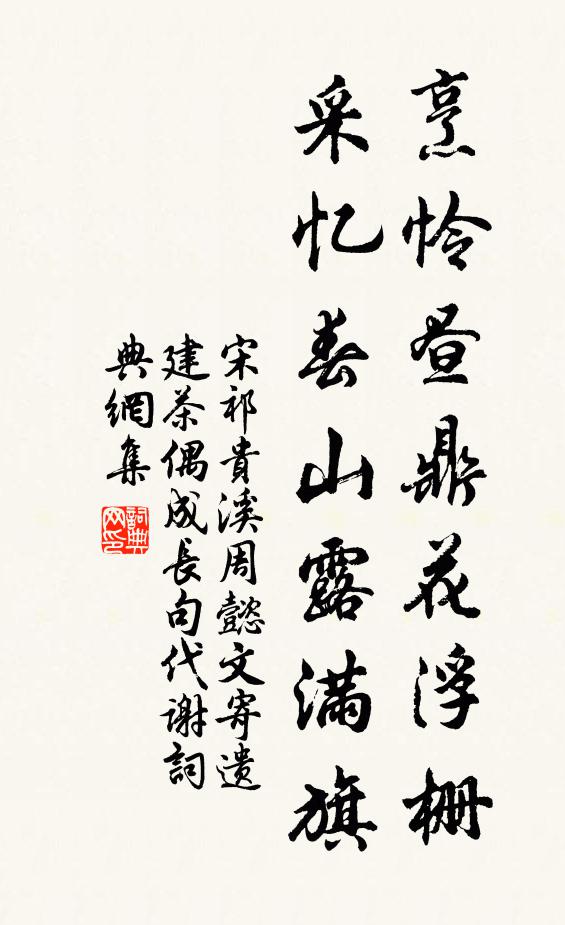 烹怜昼鼎花浮栅
采忆春山露满旗
宋祁貴溪周懿文寄遗
建茶偶成长句代谢詞
典網集
詞典网印